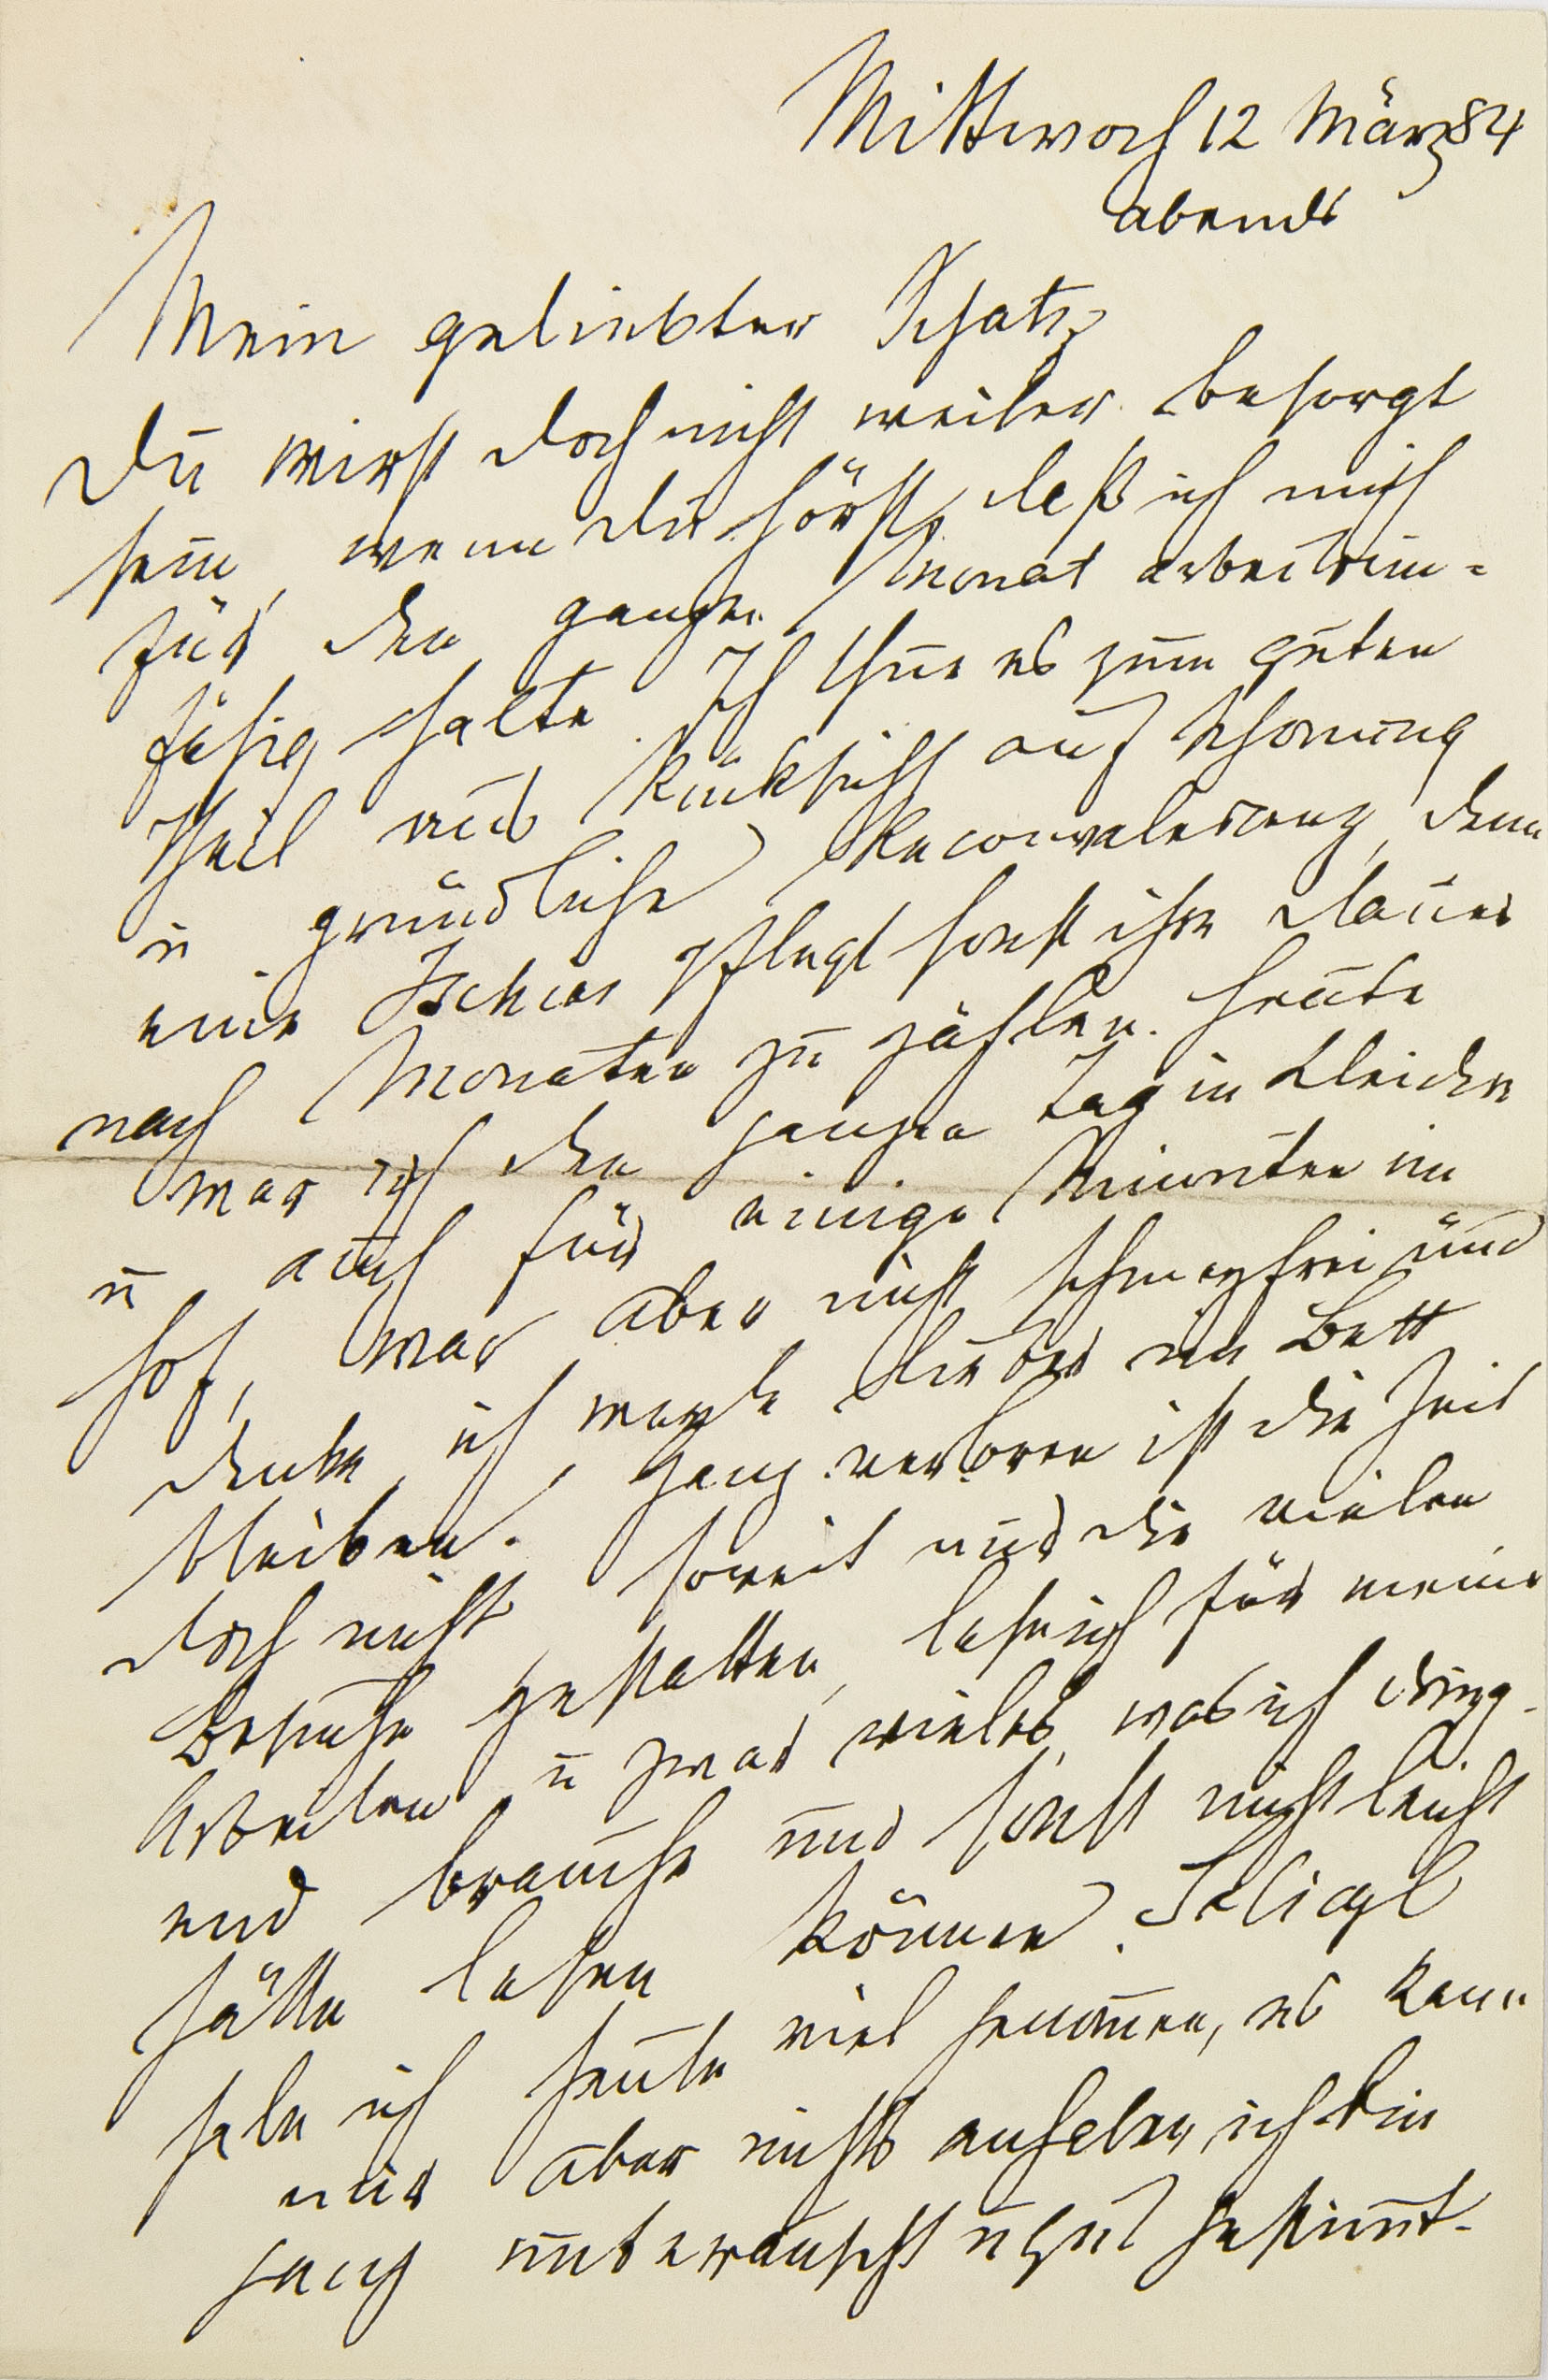 Mittwoch 12 März 84
abends
Mein geliebter Schatz
Du wirst doch nicht weiter besorgt
sein, wenn du hörst, daß ich mich
für den ganzen Monat arbeitsun=
fähig halte. Ich thue es zum guten
Theil aus Rücksicht auf Schonung
u gründliche Reconvalescenz, denn
eine Ischias pflegt sonst ihre Dauer
nach Monaten zu zählen. Heute
war ich den ganzen Tag in Kleidern
u auch für einige Minuten im
Hof, war aber nicht schmerzfrei und
denke, ich werde lieber im Bett
bleiben. Ganz verloren ist die Zeit
doch nicht. Soweit mir's die vielen
Besuche gestatten, lese ich für meine
Arbeiten u zwar vieles, was ich dring-
end brauche und sonst nicht leicht
hätte lesen können. Salicyl
habe ich heute viel genommen, es kann
mir aber nichts anhaben, ich bin
ganz unberauscht u gut gestimmt.